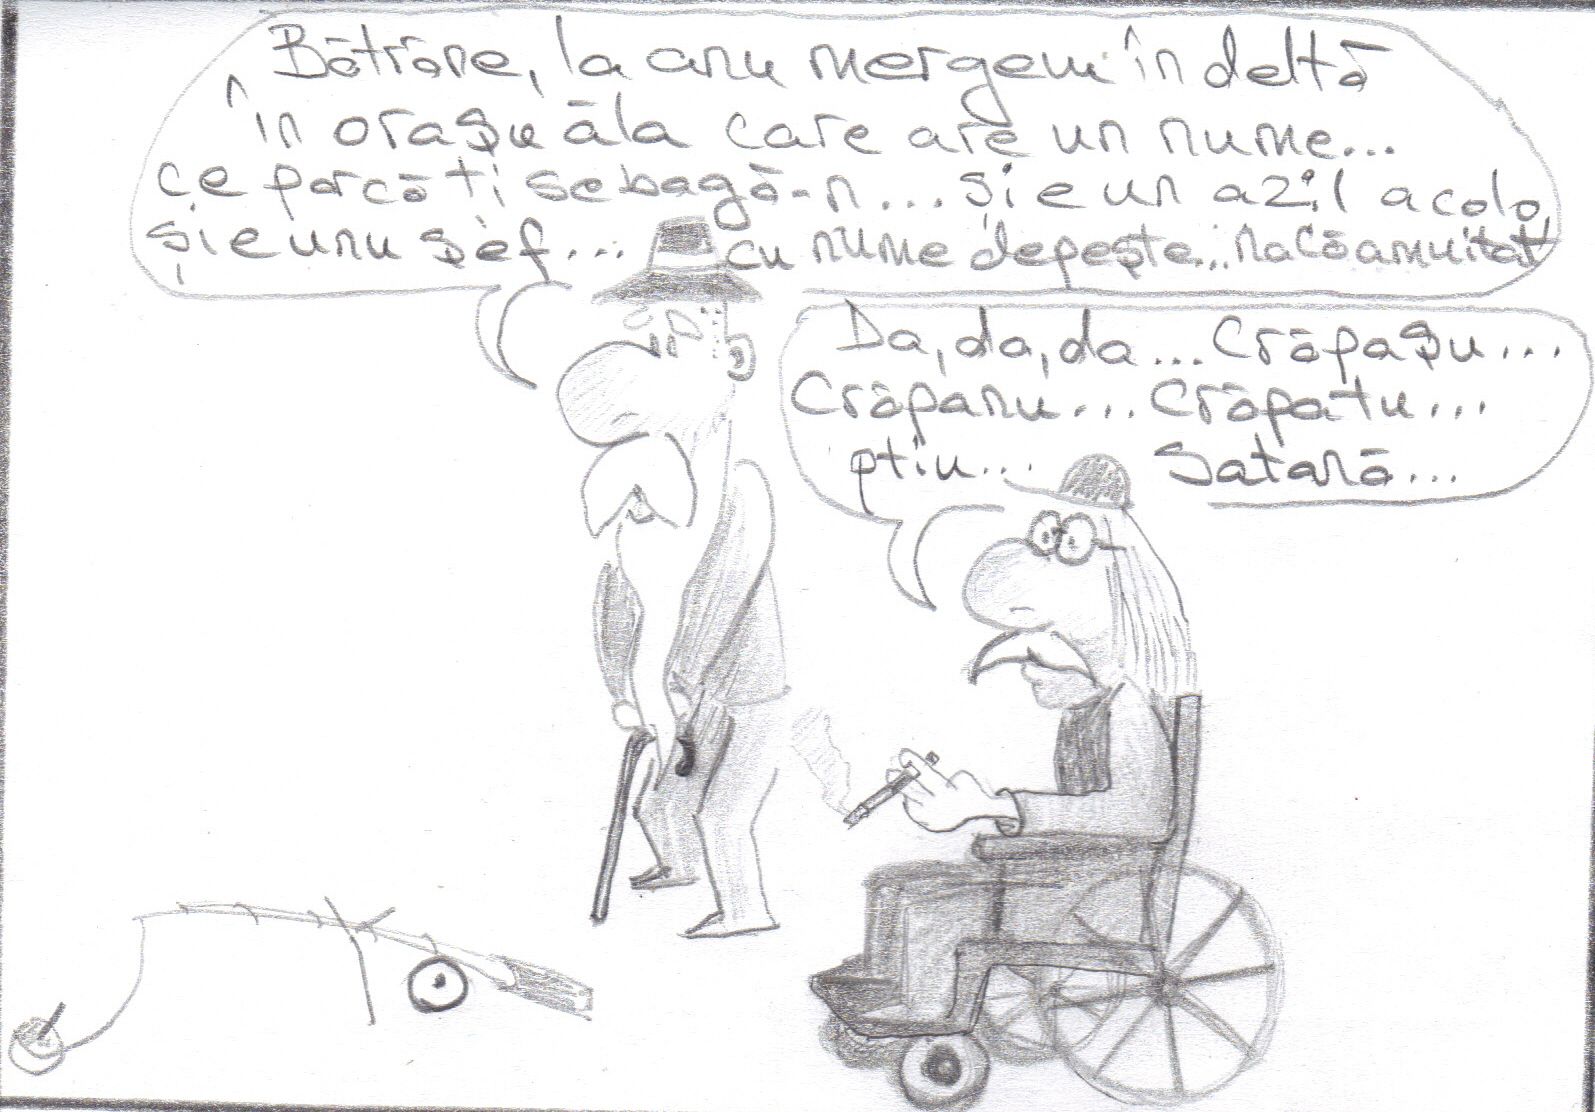 Bătrâne, la anu mergem în deltă
în orașu ăla care are un nume...
ce parcă ți se bagă-n... și e un azil acolo,
și e unu șef... cu nume de pește... na că am uitat
Da, da, da... Crăpașu...
Crăpanu... Crăpatu...
ptiu... Satană...